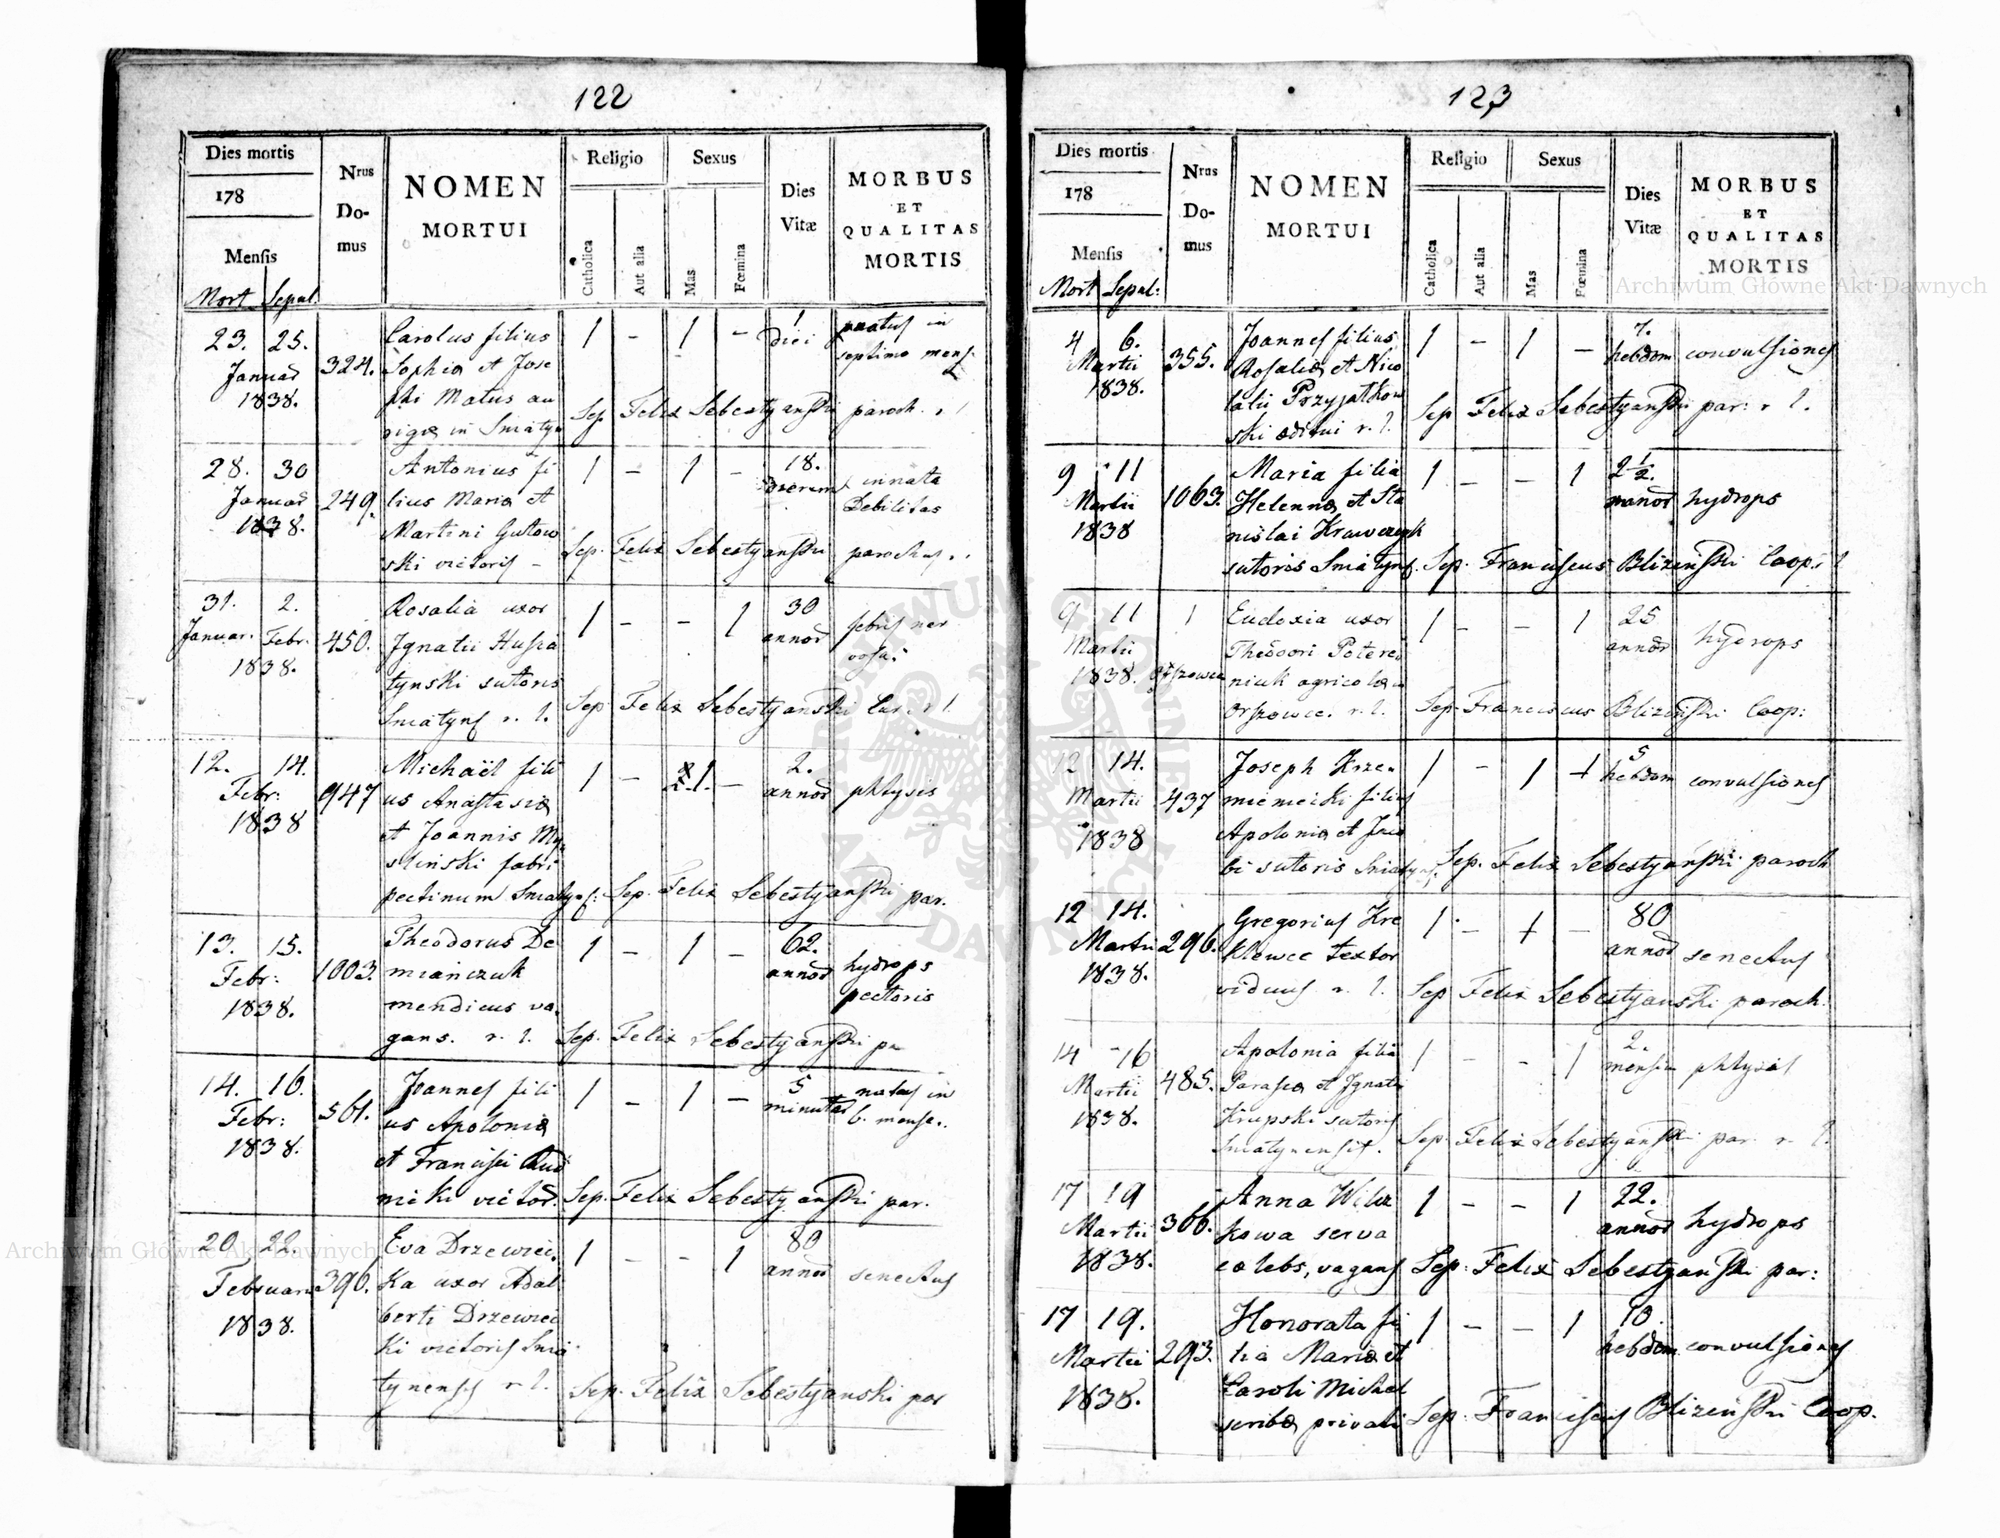 122
Dies mortis
178
Mensis
Mort Sepul.
Nrus
Do-
mus
NOMEN
MORTUI
Religio
Catholica
Aut alia
Sexus
Mas
Fœmina
Dies
Vitæ
MORBUS
ET
QUALITAS
MORTIS
23. 25.
Januar
1838.
324.
Carolus filius
Sophiæ et Jose
phi Matus au
rigæ in Sniatyn
1 - 1 -
1
diei
natus in
septimo mens.
Sep Felix Sebestyanski paroch. r l
28. 30
Januar
1838.
249.
Antonius fi
lius Mariæ et
Martini Gutow
ski victoris -
1 - 1 -
18.
dierum
innata
Debilitas
Sep. Felix Sebestyanski parochus.
31. 2.
Januar. Febr.
1838.
450.
Rosalia uxor
Ignatii Husia
tynski sutoris
Sniatyns r. l.
1 - - 1
30
annor
febris ner
vosa.
Sep Felix Sebestyanski Cur. r l.
12. 14.
Febr:
1838
947
Michaël fili
us Anastasiæ
et Joannis My
sliński fabri
pectinum Sniatyns:
1 - 1. -
2.
annor
phtysis
Sep. Felix Sebestyanski par.
13. 15.
Febr:
1838.
1003.
Theodorus De
mianczuk
mendicus va
gans. r. l.
1 - 1 -
62.
annor
hydrops
pectoris
Sep. Felix Sebestyanski pa
14. 16.
Febr:
1838.
561.
Joannes fili
us Apoloniæ
et Francisci Rud
nicki victor.
1 - 1 -
5
minutas
natus in
6. mense.
Sep. Felix Sebestyanski par.
20. 22.
Februarii
1838.
396.
Eva Drzewiec
ka uxor Adal
berti Drzewiec
ki victoris Snia
tynensis r l.
1 - - 1
80
annor
senectus
Sep. Felix Sebestyanski par
123
Dies mortis
178
Mensis
Mort Sepul:
Nrus
Do-
mus
NOMEN
MORTUI
Religio
Catholica
Aut alia
Sexus
Mas
Fœmina
Dies
Vitæ
MORBUS
ET
QUALITAS
MORTIS
4 6.
Martii
1838.
355.
Joannes filius
Rosaliæ et Nico
lai Przyjatkow
ski æditui r. l.
1 - 1 -
7.
hebdom
convulsiones
Sep Felix Sebestyanski par: r l.
9 11
Martii
1838
1063.
Maria filia
Helennæ et Sta
nislai Krawczyk
sutoris Sniatyns.
1 - - 1
2 1/2
annor
hydrops
Sep. Franciscus Blizenski Coop: r l
9 11
Martii
1838.
1
Orszowce
Eudoxia uxor
Theodori Poterei
niuk agricolæ in
Orszowce. r. l.
1 - - 1
25
annor
hydrops
Sep Franciscus Blizenski Coop:
12 14.
Martii
1838
437
Joseph Krze
mieniecki filius
Apoloniæ et Jaco
bi sutoris Sniatyns.
1 - 1 +
5
hebdom
convulsiones
Sep. Felix Sebestyanski paroch
12 14.
Martii
1838.
296.
Gregorius Kre
klewec textor
viduus r. l.
1. - + -
80
annor
senectus
Sep Felix Sebestyanski paroch.
14 16
Martii
1838.
485.
Apolonia filia
Parasiæ et Ignatii
Krupski sutoris
Sniatynensis.
1 - - 1
2.
mensiu
phtysis
Sep. Felix Sebestyanski par. r. l.
17 19
Martii
1838.
366.
Anna Wilcz
kowa serva
cælebs, vagans
1 - - 1
22.
annor
hydrops
Sep. Felix Sebestyanski par:
17 19.
Martii
1838.
293.
Honorata fi
lia Mariæ et
Caroli Michel
scribæ privati
1 - - 1
10.
hebdom
convulsiones
Sep. Franciscus Blizenski Coop.
Archiwum Główne Akt Dawnych
Archiwum Główne Akt Dawnych
ARCHIWUM GŁÓWNE
AKT DAWNYCH